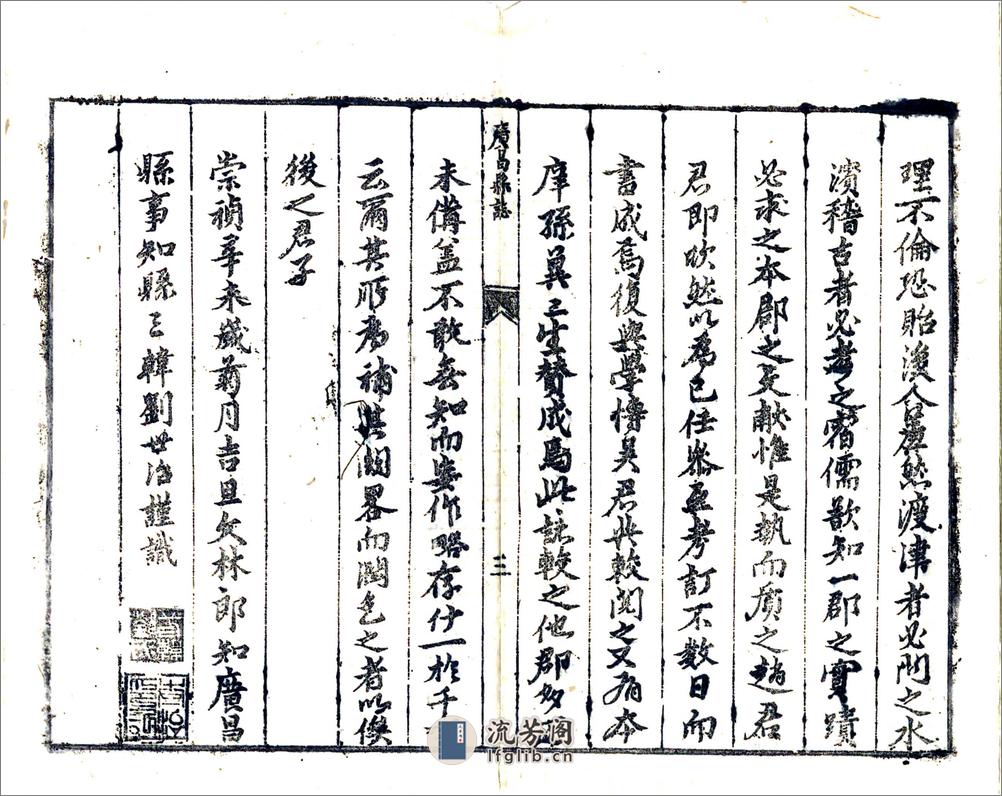 理不倫恐貽後人羞然渡津者必問之水
濱稽古者必考之宿儒欲知一郡之實蹟
必求之本郡之文獻惟是執而質之趙君
君即欣然以為己任參互考訂不數日而
書成焉復與學博吳君共較閱之又有本
庠孫異三生贊成焉此誌較之他郡多
廣昌縣誌
三
未備蓋不敢無知而妄作略存什一於千
云爾其所為補其闕畧而潤色之者以俟
後之君子
崇禎辛未歲菊月吉旦文林郎知廣昌
縣事知縣三韓劉世治謹識
流芳阁
lfglib.cn